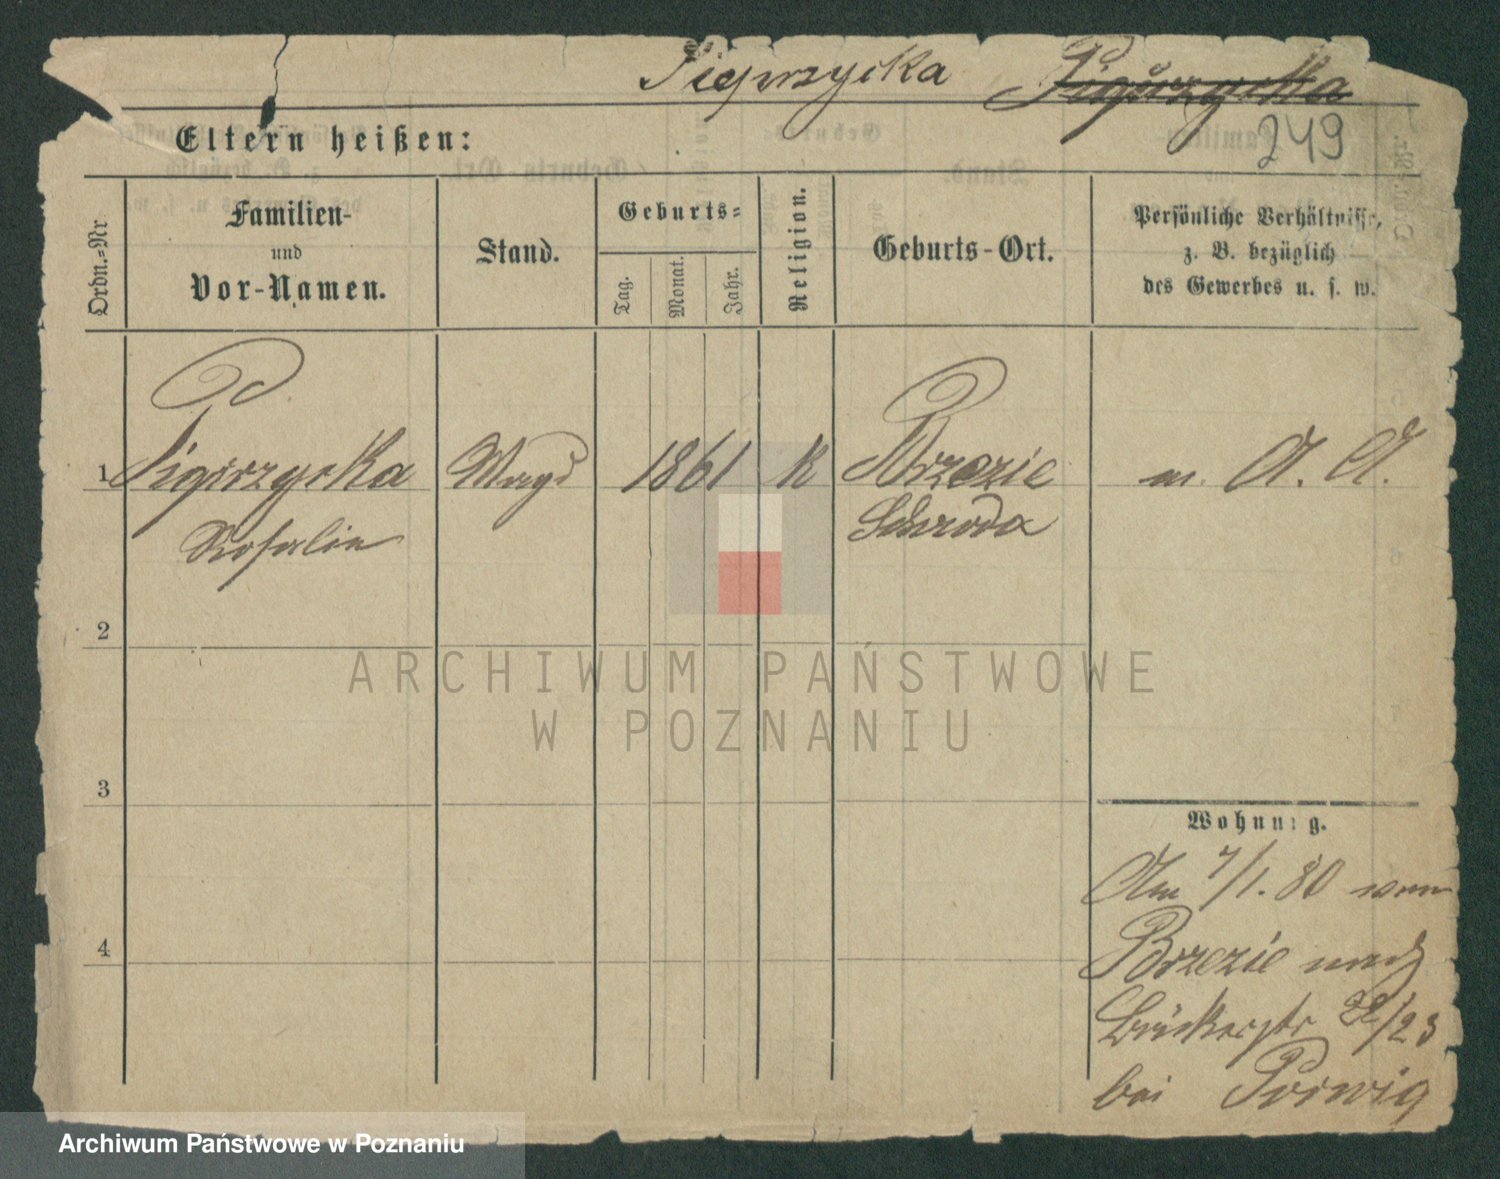 Piegrzycka Pigurzycka
249
Eltern heißen:
Ordn.-Nr
Familien-
und
Vor-Namen.
Stand.
Geburts-
Tag.
Monat.
Jahr.
Religion.
Geburts-Ort.
Persönliche Verhältnisse,
z. B. bezüglich
des Gewerbes u. s. w.
1 Magd 1861 K Brzezie m. A. A.
Rosalie Schroda
2
3
4
Wohnung.
Am 7/1. 80 von
Brzezie nach
22/23
bei Porwig
ARCHIWUM PAŃSTWOWE
W POZNANIU
Archiwum Państwowe w Poznaniu